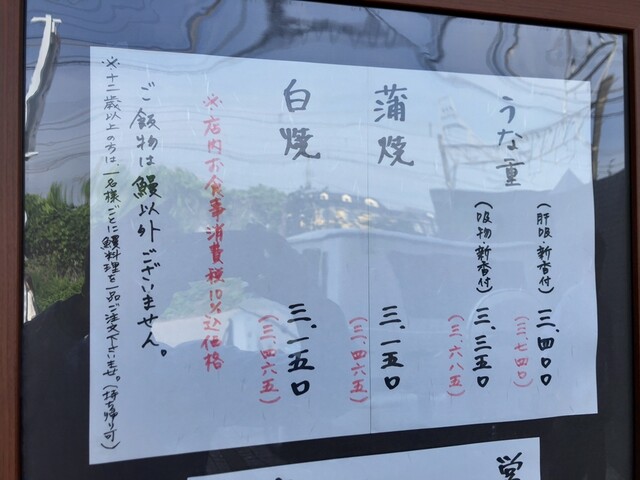 うな重
(肝吸・新香付) 三、四〇〇
(三、七四〇)
(吸物・新香付) 三、三五〇
(三、六八五)
蒲焼 三、一五〇
(三、四六五)
白焼 三、一五〇
(三、四六五)
※店内お食事消費税10%込価格
ご飯物は鰻以外ございません。
※十二歳以上の方は、一名様ごとに鰻料理を一品ご注文下さいませ。(持ち帰り可)
営